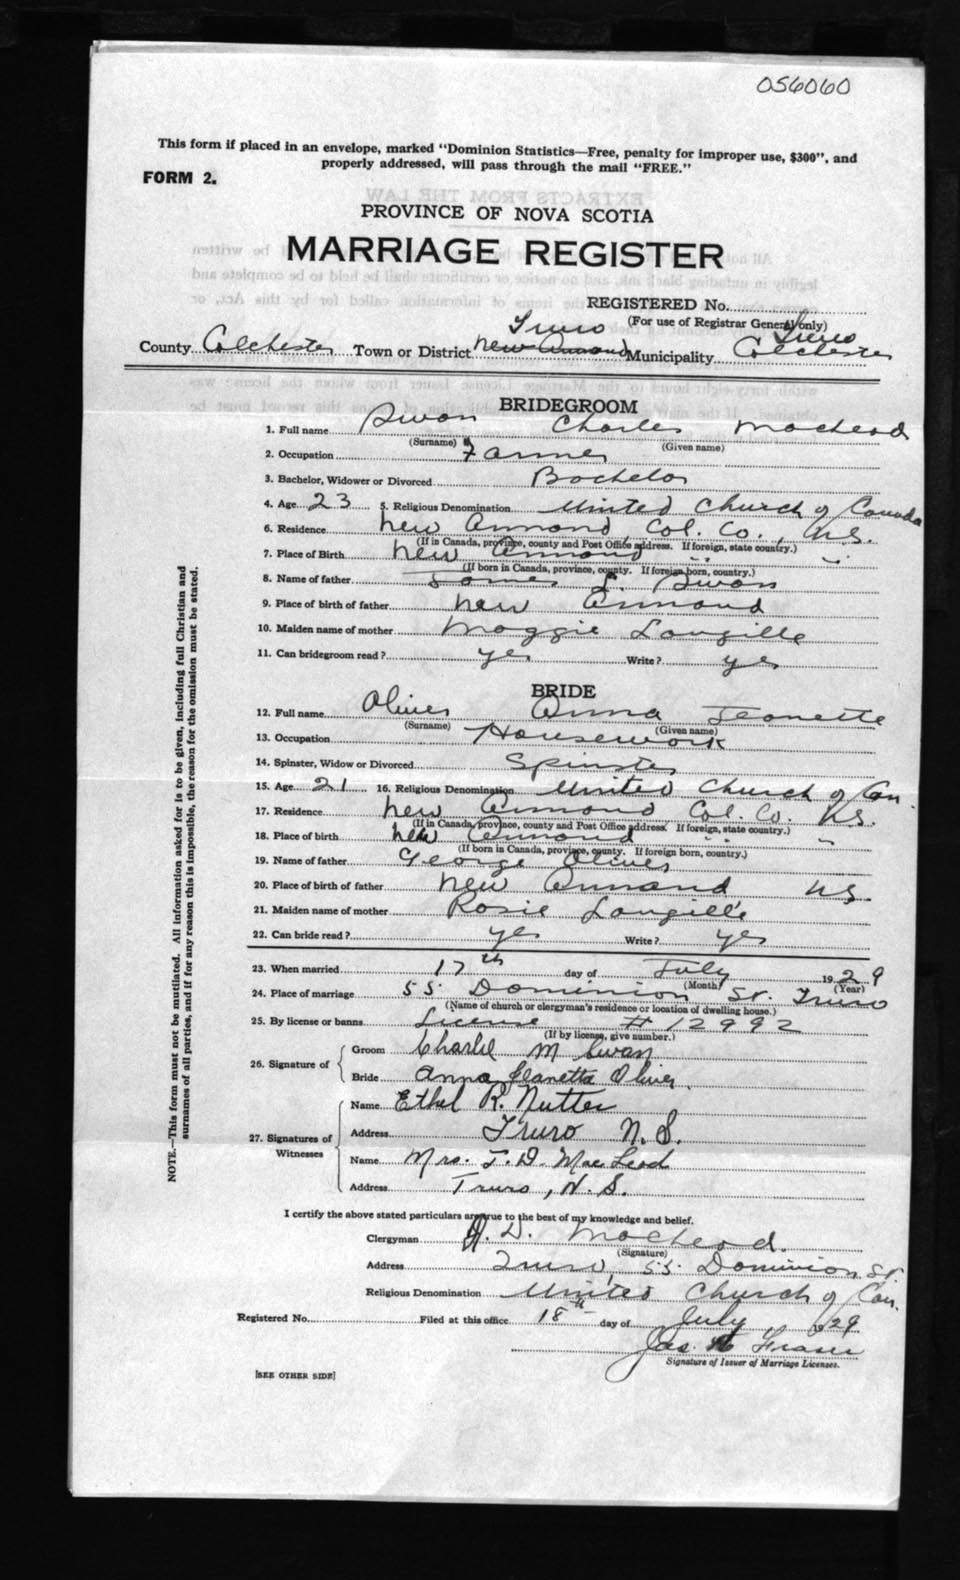 056060
This form if placed in an envelope, marked "Dominion Statistics—Free, penalty for improper use, $300", and
properly addressed, will pass through the mail "FREE."
FORM 2.
PROVINCE OF NOVA SCOTIA
MARRIAGE REGISTER
REGISTERED No.
(For use of Registrar General only)
Truro Truro
County Colchester Town or District New Annand Municipality Colchester
BRIDEGROOM
1. Full name Swan Charles Macleod
(Surname) (Given name)
2. Occupation Farmer
3. Bachelor, Widower or Divorced Bachelor
4. Age 23 5. Religious Denomination United Church of Canada
6. Residence New Annand, Col. Co., N.S.
(If in Canada, province, county and Post Office address. If foreign, state country.)
7. Place of Birth New Annand " "
(If born in Canada, province, county. If foreign born, country.)
8. Name of father James L. Swan
9. Place of birth of father New Annand
10. Maiden name of mother Maggie Langille
11. Can bridegroom read? yes Write? yes
BRIDE
12. Full name Oliver Anna Jeanette
(Surname) (Given name)
13. Occupation Housework
14. Spinster, Widow or Divorced Spinster
15. Age 21 16. Religious Denomination United Church of Can.
17. Residence New Annand Col. Co. N.S.
(If in Canada, province, county and Post Office address. If foreign, state country.)
18. Place of birth New Annand " "
(If born in Canada, province, county. If foreign born, country.)
19. Name of father George Oliver
20. Place of birth of father New Annand N.S.
21. Maiden name of mother Rosie Langille
22. Can bride read? yes Write? yes
23. When married 17th day of July 1929
(Month) (Year)
24. Place of marriage 55 Dominion St. Truro
(Name of church or clergyman's residence or location of dwelling house.)
25. By license or banns License # 12992
(If by license, give number.)
26. Signature of Groom Charlie M Swan
Bride Anna Jeanetta Oliver.
27. Signatures of Witnesses Name Ethel R. Nutter
Address Truro N.S.
Name Mrs. J. D. MacLeod
Address Truro, N.S.
I certify the above stated particulars are true to the best of my knowledge and belief.
Clergyman J. D. Macleod.
(Signature)
Address Truro, 55 Dominion St.
Religious Denomination United Church of Can.
Registered No. Filed at this office 18th day of July 1929
Jas Fraser
Signature of Issuer of Marriage Licenses.
[SEE OTHER SIDE]
NOTE.—This form must not be mutilated. All information asked for is to be given, including full Christian and
surnames of all parties, and if for any reason this is impossible, the reason for the omission must be stated.